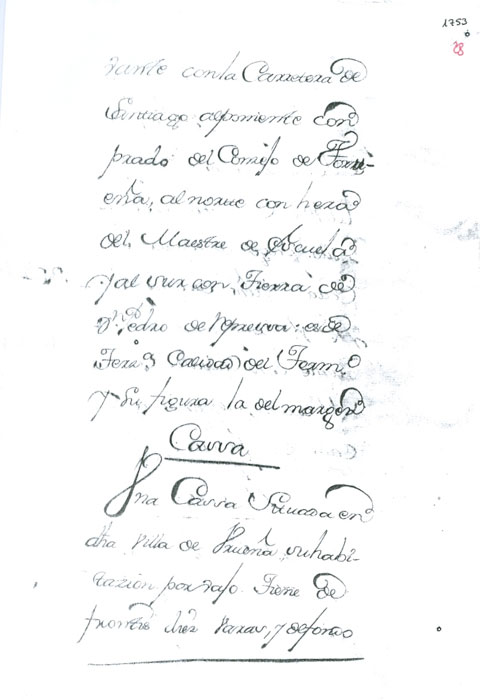 1753
28
vante con la Carretera de
Santiago al poniente con
prado del Comejo de
al norue con hera
del Maestre de Escuela
y al sur con Tierra de
Dn Pedro de es de
Terz.a Calidad del Term.o
y su figura la del margen
Cassa
Una Cassa Situada en
dha Villa de su habi-
tazion por vajo Tiene de
frontis diez varas, y de fondo